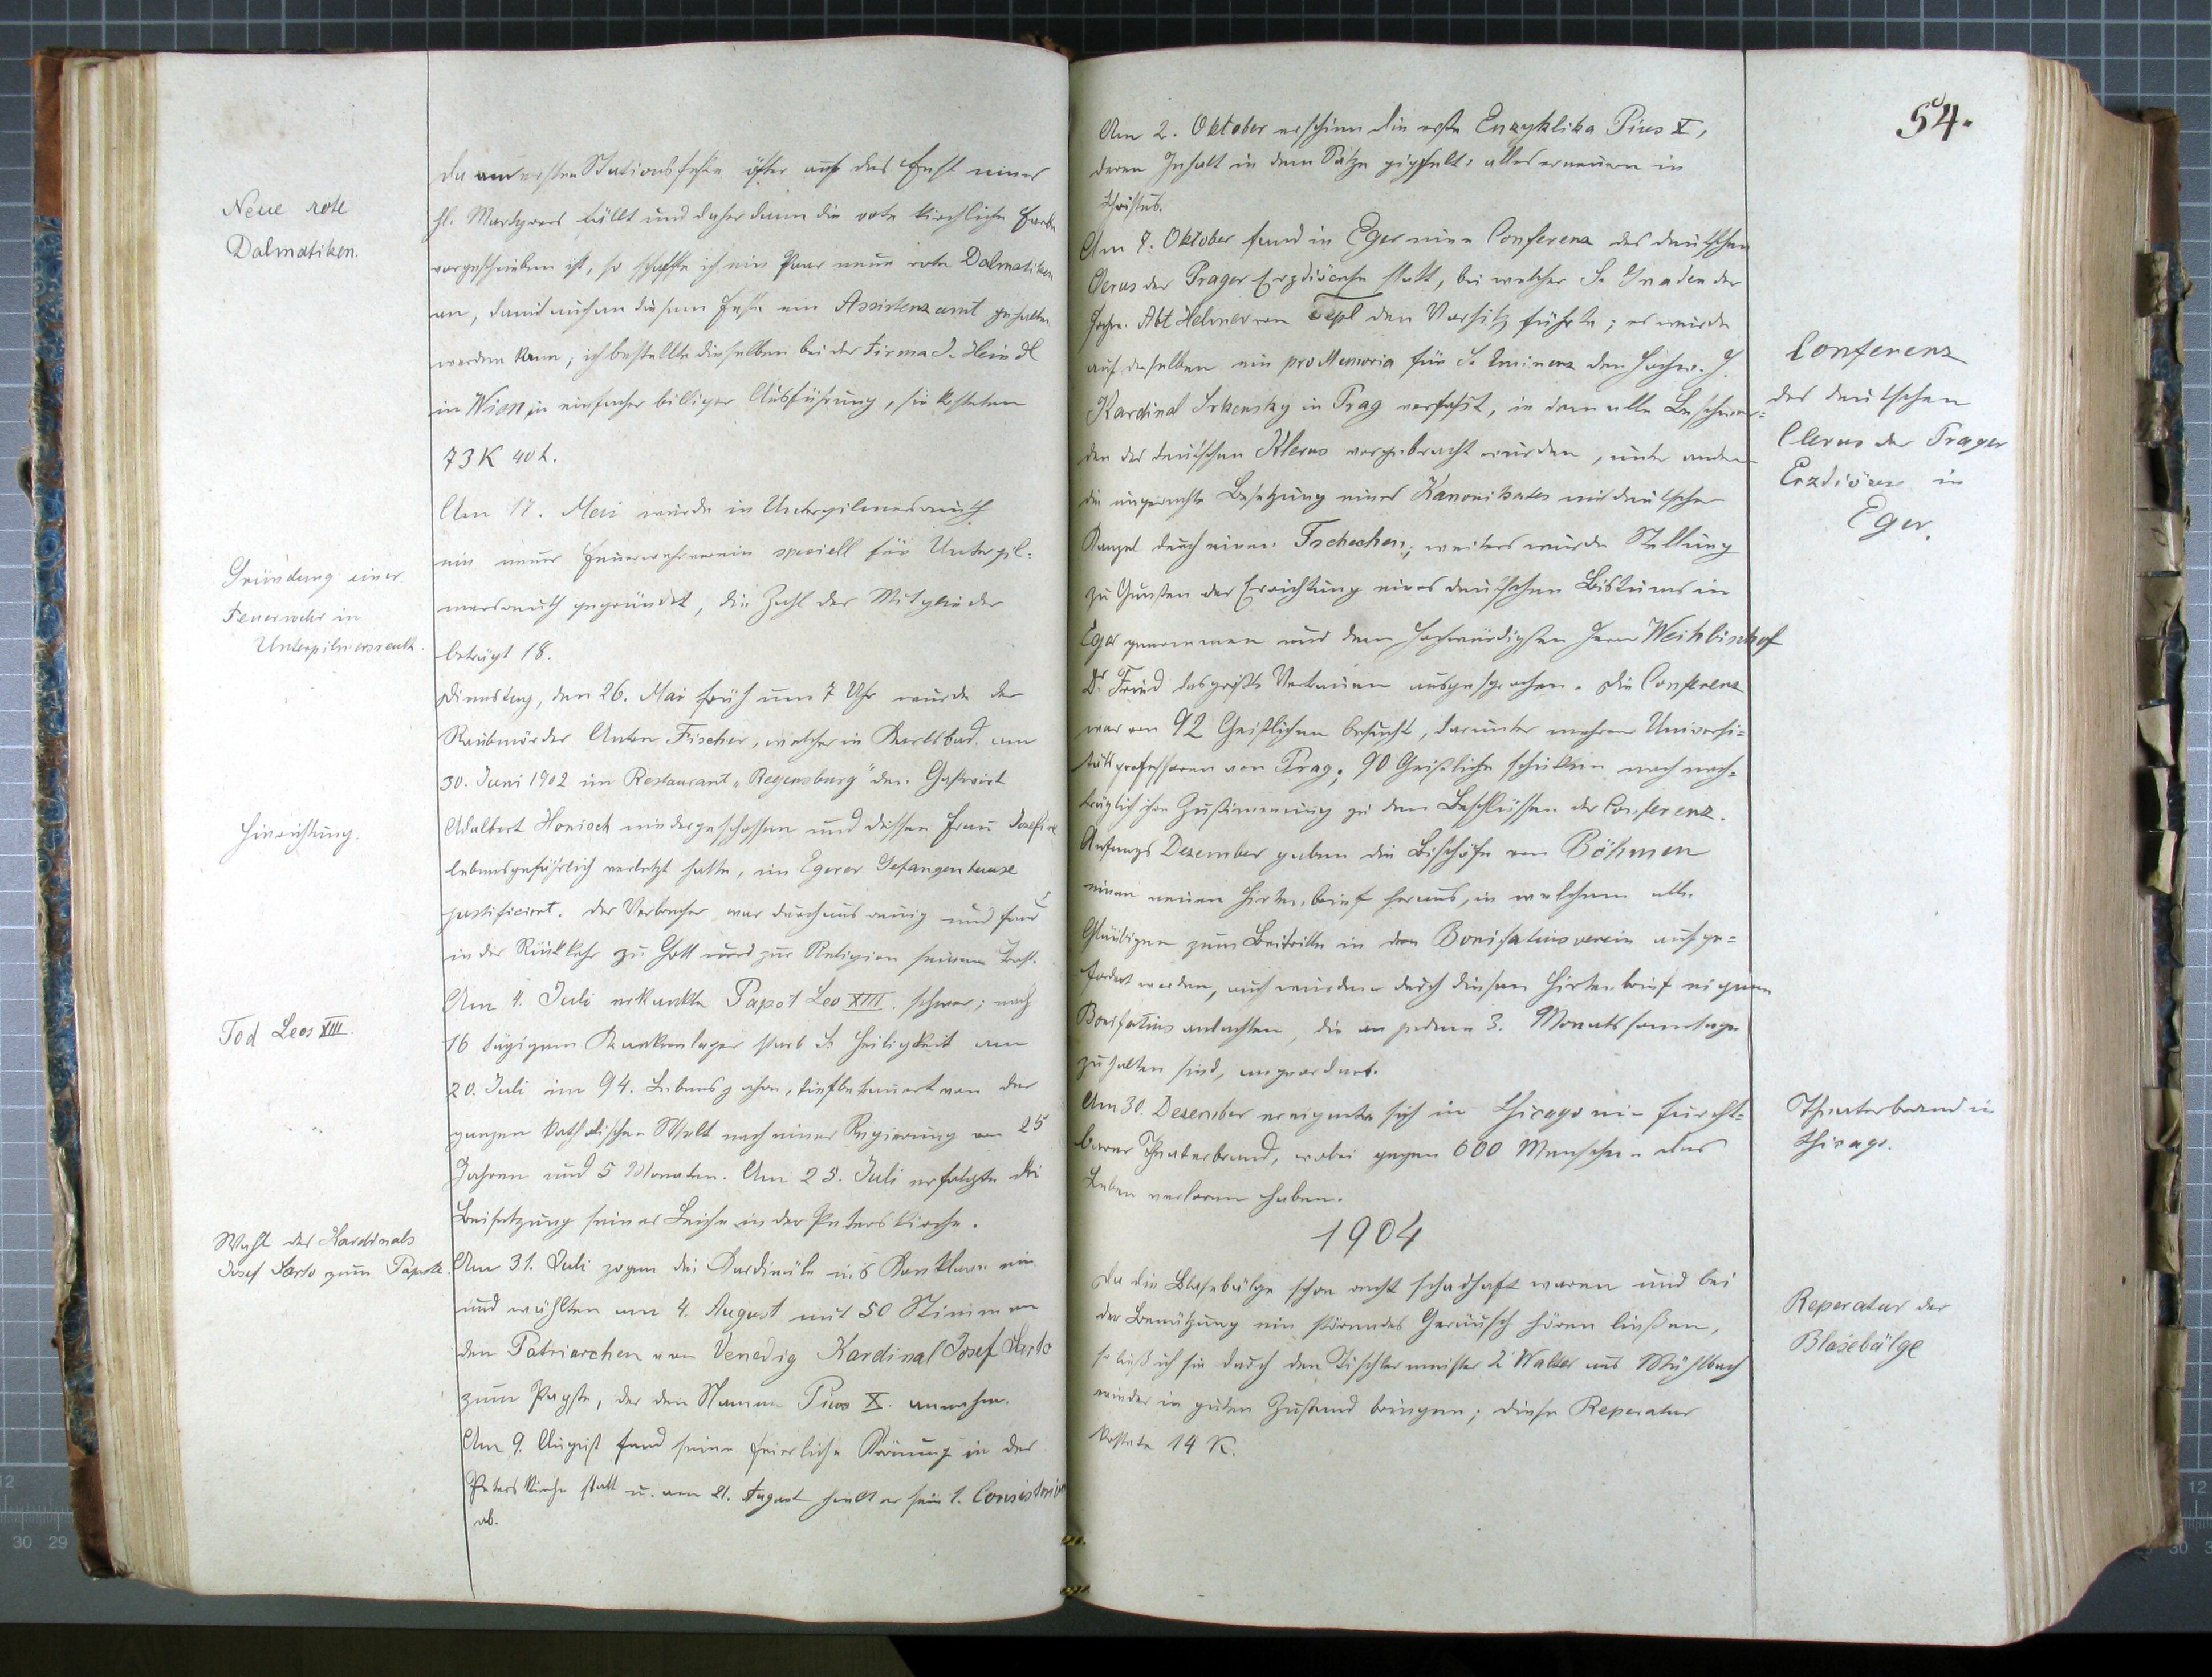 Neue rote
Dalmatiken.
da am ersten Stationsfeste öfter auf das Fest eines
hl. Martyrers fällt und daher dann die rote kirchliche Farbe
vorgeschrieben ist, so schaffte ich ein Paar neue rote Dalmatiken
an, damit auch an diesem Feste ein Assistenzamt gehalten
werden kann; ich bestellte dieselben bei der Firma J. Heindl
in Wien in einfacher billiger Ausführung, sie kosteten
73 K 40 h.
Gründung einer
Feuerwehr in
Unterpilmersreuth.
Am 17. Mai wurde in Unterpilmersreuth
ein neuer Feuerwehrverein speciell für Unterpil-
mersreuth gegründet, die Zahl der Mitglieder
beträgt 18.
Hinrichtung.
Dienstag, den 26. Mai früh um 7 Uhr wurde der
Raubmörder Anton Fischer, welcher in Karlsbad am
30. Juni 1902 im Restaurant „Regensburg" den Gastwirt
Adalbert Honisch niedergeschossen und dessen Frau Josefine
lebensgefährlich verletzt hatte, im Egerer Gefangenhause
justificirt. Der Verbrecher war durchaus reuig und fand
in der Rückkehr zu Gott und zur Religion seinen Trost.
Tod Leos XIII.
Am 4. Juli erkrankte Papst Leo XIII. schwer; nach
16 tägigem Krankenlager starb S. Heiligkeit am
20. Juli im 94. Lebensjahre, tiefbetrauert von der
ganzen katholischen Welt nach einer Regierung von 25
Jahren und 5 Monaten. Am 25. Juli erfolgte die
Beisetzung seiner Leiche in der Peterskirche.
Wahl des Kardinals
Josef Sarto zum Papste.
Am 31. Juli zogen die Kardinäle ins Konklave ein
und wählten am 4. August mit 50 Stimmen
den Patriarchen von Venedig Kardinal Josef Sarto
zum Papste, der den Namen Pius X. annahm.
Am 9. August fand seine feierliche Krönung in der
Peterskirche statt u. am 21. August hielt er sein 1. Consistorium
ab.
54.
Am 2. Oktober erschien die erste Enzyklika Pius X,
deren Inhalt in dem Satze gipfelt: alles erneuern in
Christus.
Conferenz
des deutschen
Clerus der Prager
Erzdiöcese in
Eger.
Am 7. Oktober fand in Eger eine Conferenz des deutschen
Clerus der Prager Erzdiöcese statt, bei welcher S. Gnaden der
Hochw. Abt Helmer von Tepl den Vorsitz führte; es wurde
auf derselben ein pro Memoria für S. Eminenz den Hochw. H.
Kardinal Skrbensky in Prag verfasst, in dem alle Beschwer=
den des deutschen Klerus vorgebracht wurden, unter anderen
die ungerechte Besetzung eines Kanonikates mit deutscher
Kanzel durch einen Tschechen; weiters wurde Stellung
zu Gunsten der Errichtung eines deutschen Bistums in
Eger genommen und dem hochwürdigsten Herrn Weihbischof
Dr. Frind das größte Vertrauen ausgesprochen. Die Conferenz
war von 92 Geistlichen besucht, darunter mehrere Universi=
tätsprofessoren von Prag; 90 Geistliche schickten noch nach=
träglich ihre Zustimmung zu den Beschlüssen der Conferenz.
Anfangs Dezember gaben die Bischöfe von Böhmen
einen neuen Hirtenbrief heraus, in welchem alle
Gläubigen zum Beitritte in den Bonifatiusverein aufge=
fordert werden, auch wurden durch diesen Hirtenbrief eigene
Bonifatius andachten, die an jedem 3. Monatssonntage
zu halten sind, angeordnet.
Theaterbrand in
Chicago.
Am 30. Dezember ereignete sich in Chicago ein furcht=
barer Theaterbrand, wobei gegen 600 Menschen das
Leben verloren haben.
1904
Reperatur der
Blasebälge
Da die Blasebälge schon recht schadhaft waren und bei
der Benützung ein störendes Geräusch hören ließen,
so ließ ich sie durch den Tischlermeister Walter aus Mühlbach
wieder in guten Zustand bringen; diese Reperatur
kostete 14 K.